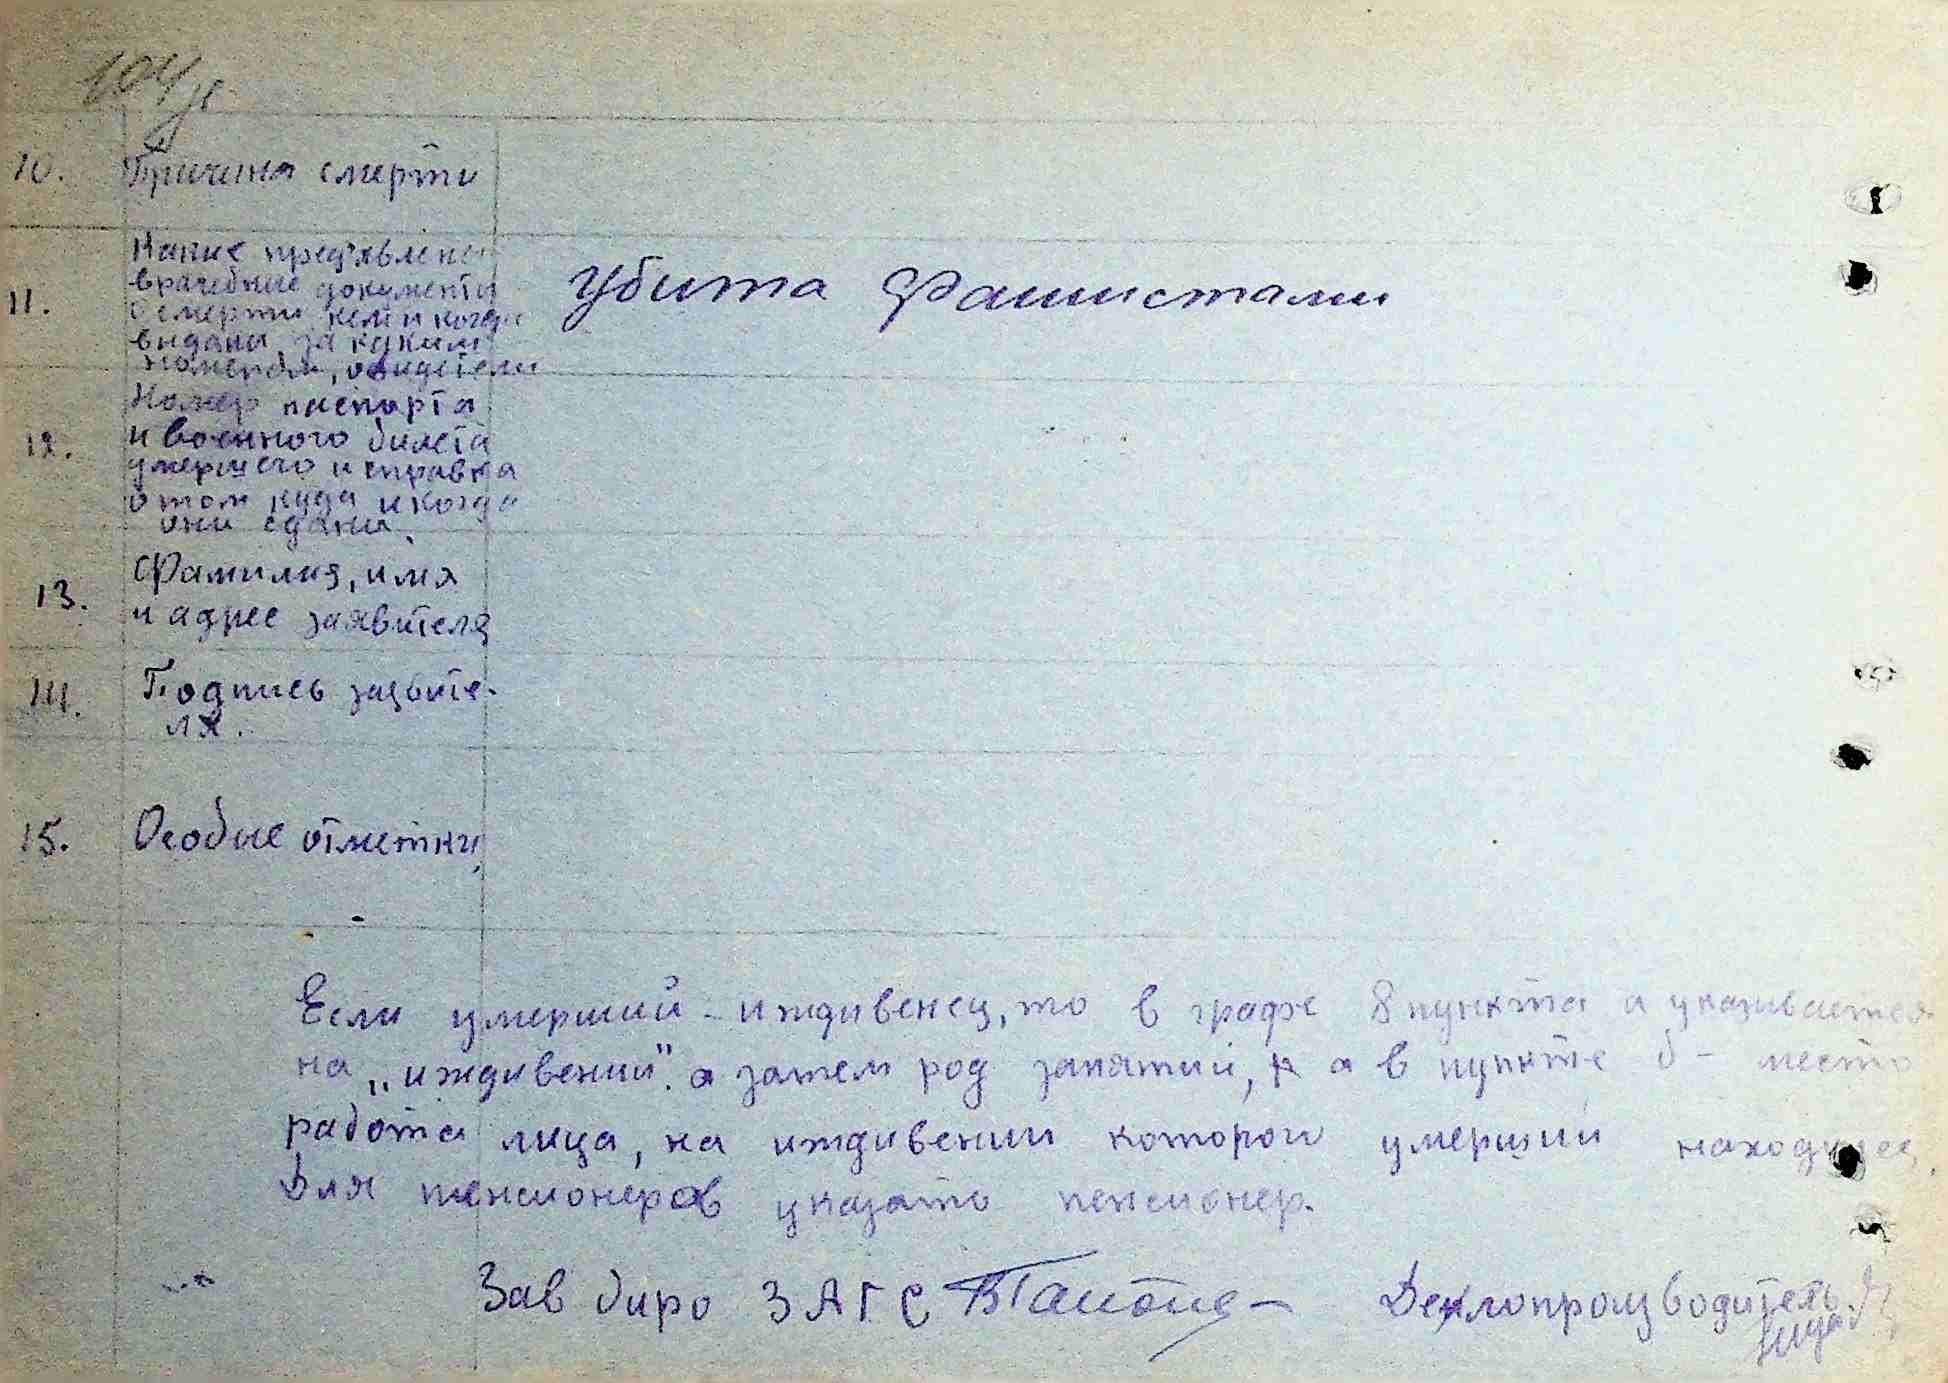 10. Причина смерти
Какие пред'явлены
врачебные документы
11.
о смерти, кем и когда
убита фашистами
выданы за каким
номером, свидетели
Номер паспорта
и военного билета
12.
умершего и справка
о том куда и когда
они сданы.
Фамилия, имя
13.
и адрес заявителя
14. Подпись заявите-
ля.
15. Особые отметки
Если умерший - иждивенец, то в графе 8 пункта а указывается
на „иждивении". а затем род занятий, а в пункте б - место
работы лица, на иждивении которого умерший находился.
Для пенсионеров указать пенсионер.
Зав бюро ЗАГС Делопроизводитель